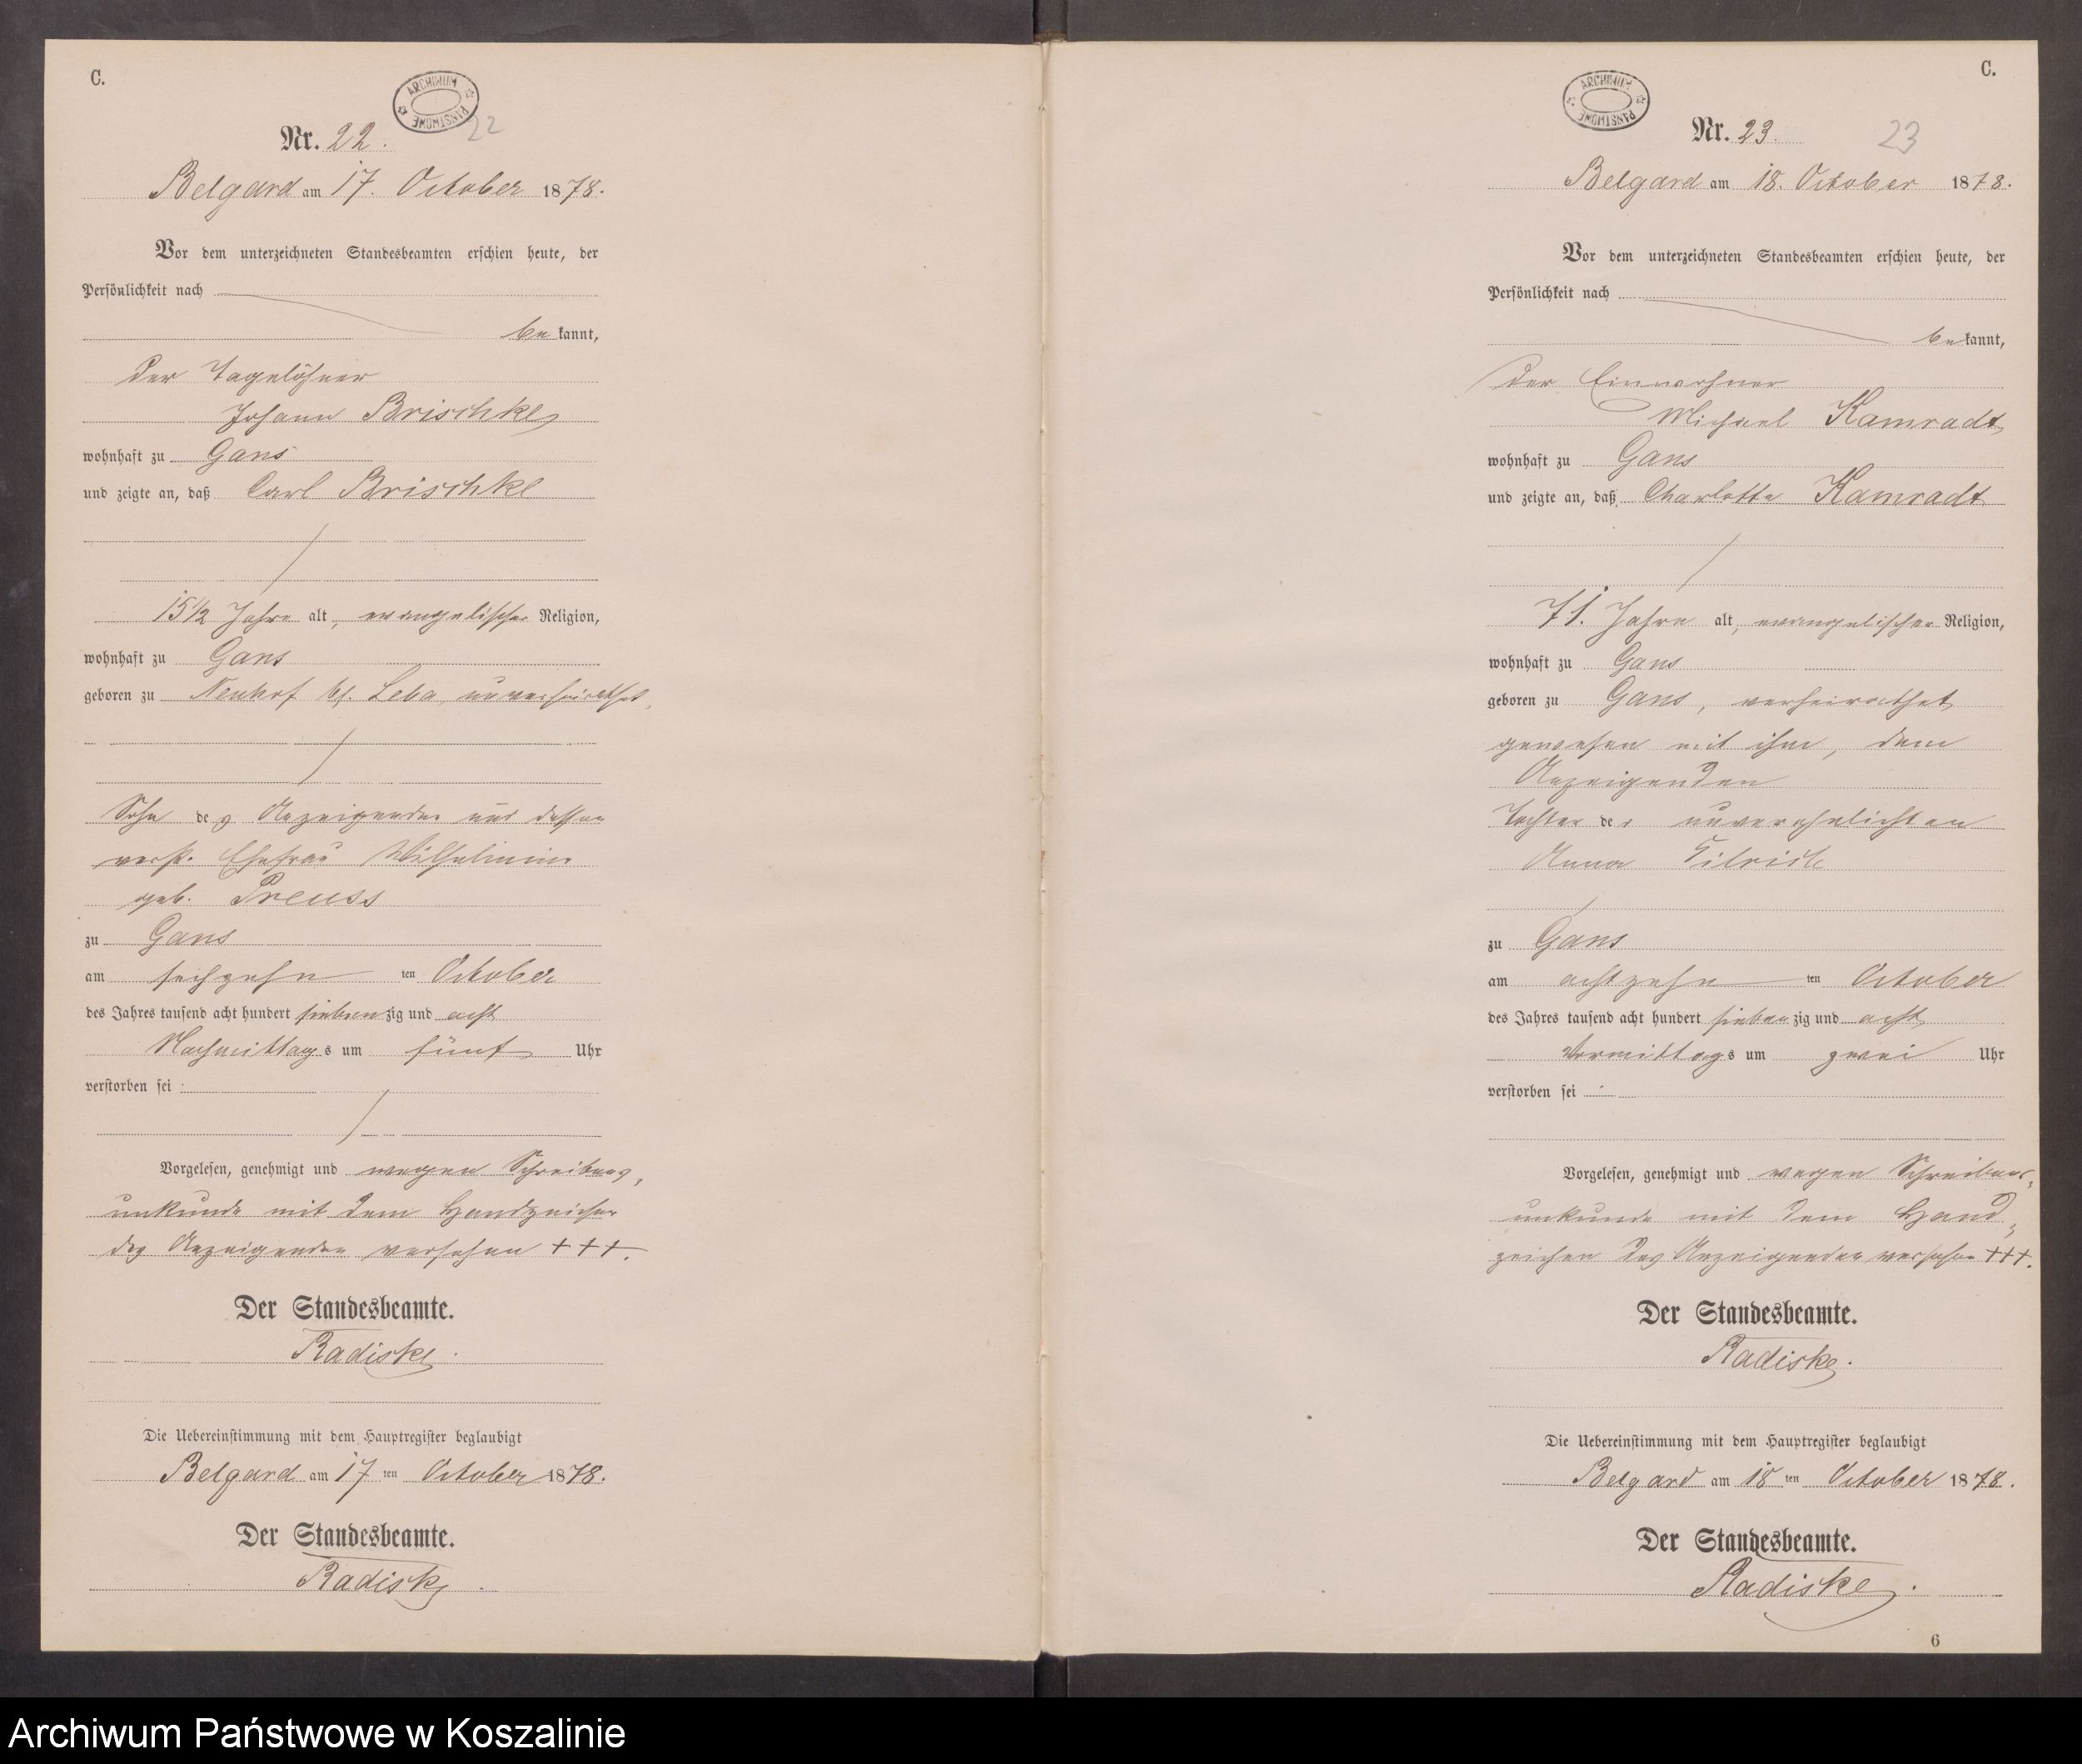 C.
ARCHIWUM PAŃSTWOWE
Nr. 22.
22
Belgard am 17. October 1878.
Vor dem unterzeichneten Standesbeamten erschien heute, der
Persönlichkeit nach
bekannt,
der Tagelöhner
Johann Brischke
wohnhaft zu Gans
und zeigte an, daß Carl Brischke
15 1/2 Jahre alt, evangelischer Religion,
wohnhaft zu Gans
geboren zu Neuhof bf. Leba, unverheirathet,
Sohn des Anzeigenden und dessen
verst. Ehefrau Wilhelmine
geb. Preuss
zu Gans
am sechzehn ten October
des Jahres tausend acht hundert siebenzig und acht
Nachmittags um fünf Uhr
verstorben sei
Vorgelesen, genehmigt und wegen Schreibens,
unkunde mit dem Handzeichen
des Anzeigenden versehen +++.
Der Standesbeamte.
Radiske.
Die Uebereinstimmung mit dem Hauptregister beglaubigt
Belgard am 17 ten October 1878.
Der Standesbeamte.
Radiske.
C.
ARCHIWUM PAŃSTWOWE
Nr. 23.
23
Belgard am 18. October 1878.
Vor dem unterzeichneten Standesbeamten erschien heute, der
Persönlichkeit nach
bekannt,
der Einwohner
Michael Kamradt
wohnhaft zu Gans
und zeigte an, daß Charlotte Kamradt
71. Jahre alt, evangelischer Religion,
wohnhaft zu Gans
geboren zu Gans, verheirathet
gewesen mit ihm, dem
Anzeigenden
Tochter der unverehelichten
Anna
zu Gans
am achtzehn ten October
des Jahres tausend acht hundert siebenzig und acht
Vormittags um zwei Uhr
verstorben sei
Vorgelesen, genehmigt und wegen Schreibens,
unkunde mit dem Hand,
zeichen des Anzeigenden versehen +++.
Der Standesbeamte.
Radiske.
Die Uebereinstimmung mit dem Hauptregister beglaubigt
Belgard am 18 ten October 1878.
Der Standesbeamte.
Radiske.
6
Archiwum Państwowe w Koszalinie